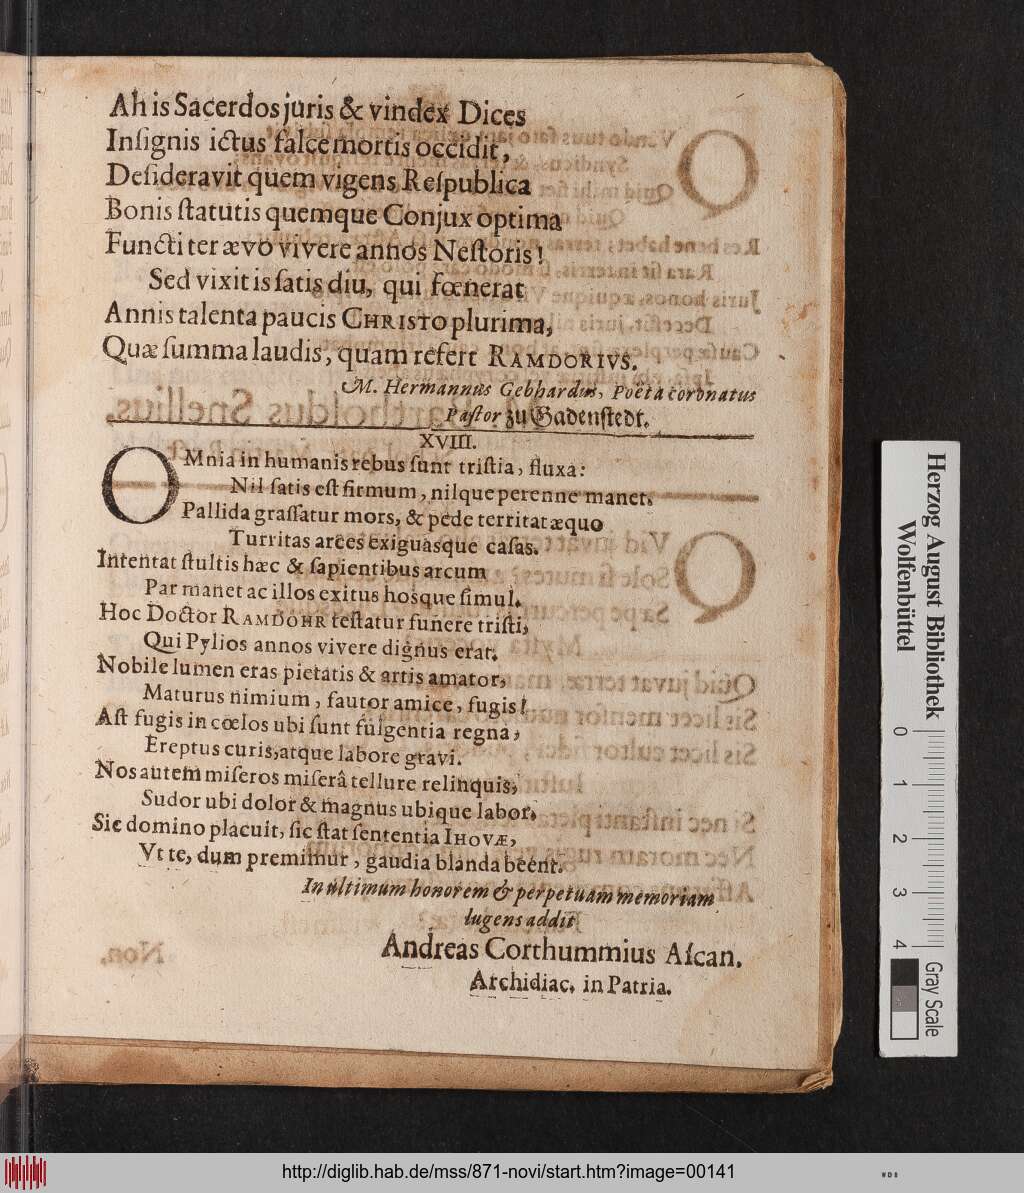 Ah is Sacerdos juris & vindex Dices
Inſignis ictus falce mortis occidit,
Deſideravit quem vigens Reſpublica
Bonis ſtatutis quemque Conjux optima
Functi ter ævo vivere annos Neſtoris!
Sed vixit is ſatis diu, qui fœnerat
Annis talenta paucis CHRISTO plurima,
Quæ ſumma laudis, quam refert RAMDORIVS.
M. Hermannus Gebhardus, Poëta coronatus
Paſtor zu Gadenſtedt.
XVIII.
OMnia in humanis rebus ſunt triſtia, fluxa:
Nil ſatis eſt firmum, nilque perenne manet.
Pallida graſſatur mors, & pede territat æquo
Turritas arces exiguasque caſas.
Intentat ſtultis hæc & ſapientibus arcum
Par manet ac illos exitus hosque ſimul.
Hoc Doctor RAMDOHR teſtatur funere triſti,
Qui Pylios annos vivere dignus erat.
Nobile lumen eras pietatis & artis amator,
Maturus nimium, fautor amice, fugis!
Aſt fugis in cœlos ubi ſunt fulgentia regna,
Ereptus curis, atque labore gravi.
Nos autem miſeros miſerâ tellure relinquis,
Sudor ubi dolor & magnus ubique labor.
Sic domino placuit, ſic ſtat ſententia IHOVÆ,
Vt te, dum premimur, gaudia blanda beent.
In ultimum honorem & perpetuam memoriam
lugens addit
Andreas Corthummius Aſcan.
Archidiac. in Patria.
Herzog August Bibliothek
Wolfenbüttel
0 1 2 3 4
Gray Scale
http://diglib.hab.de/mss/871-novi/start.htm?image=00141
WDB